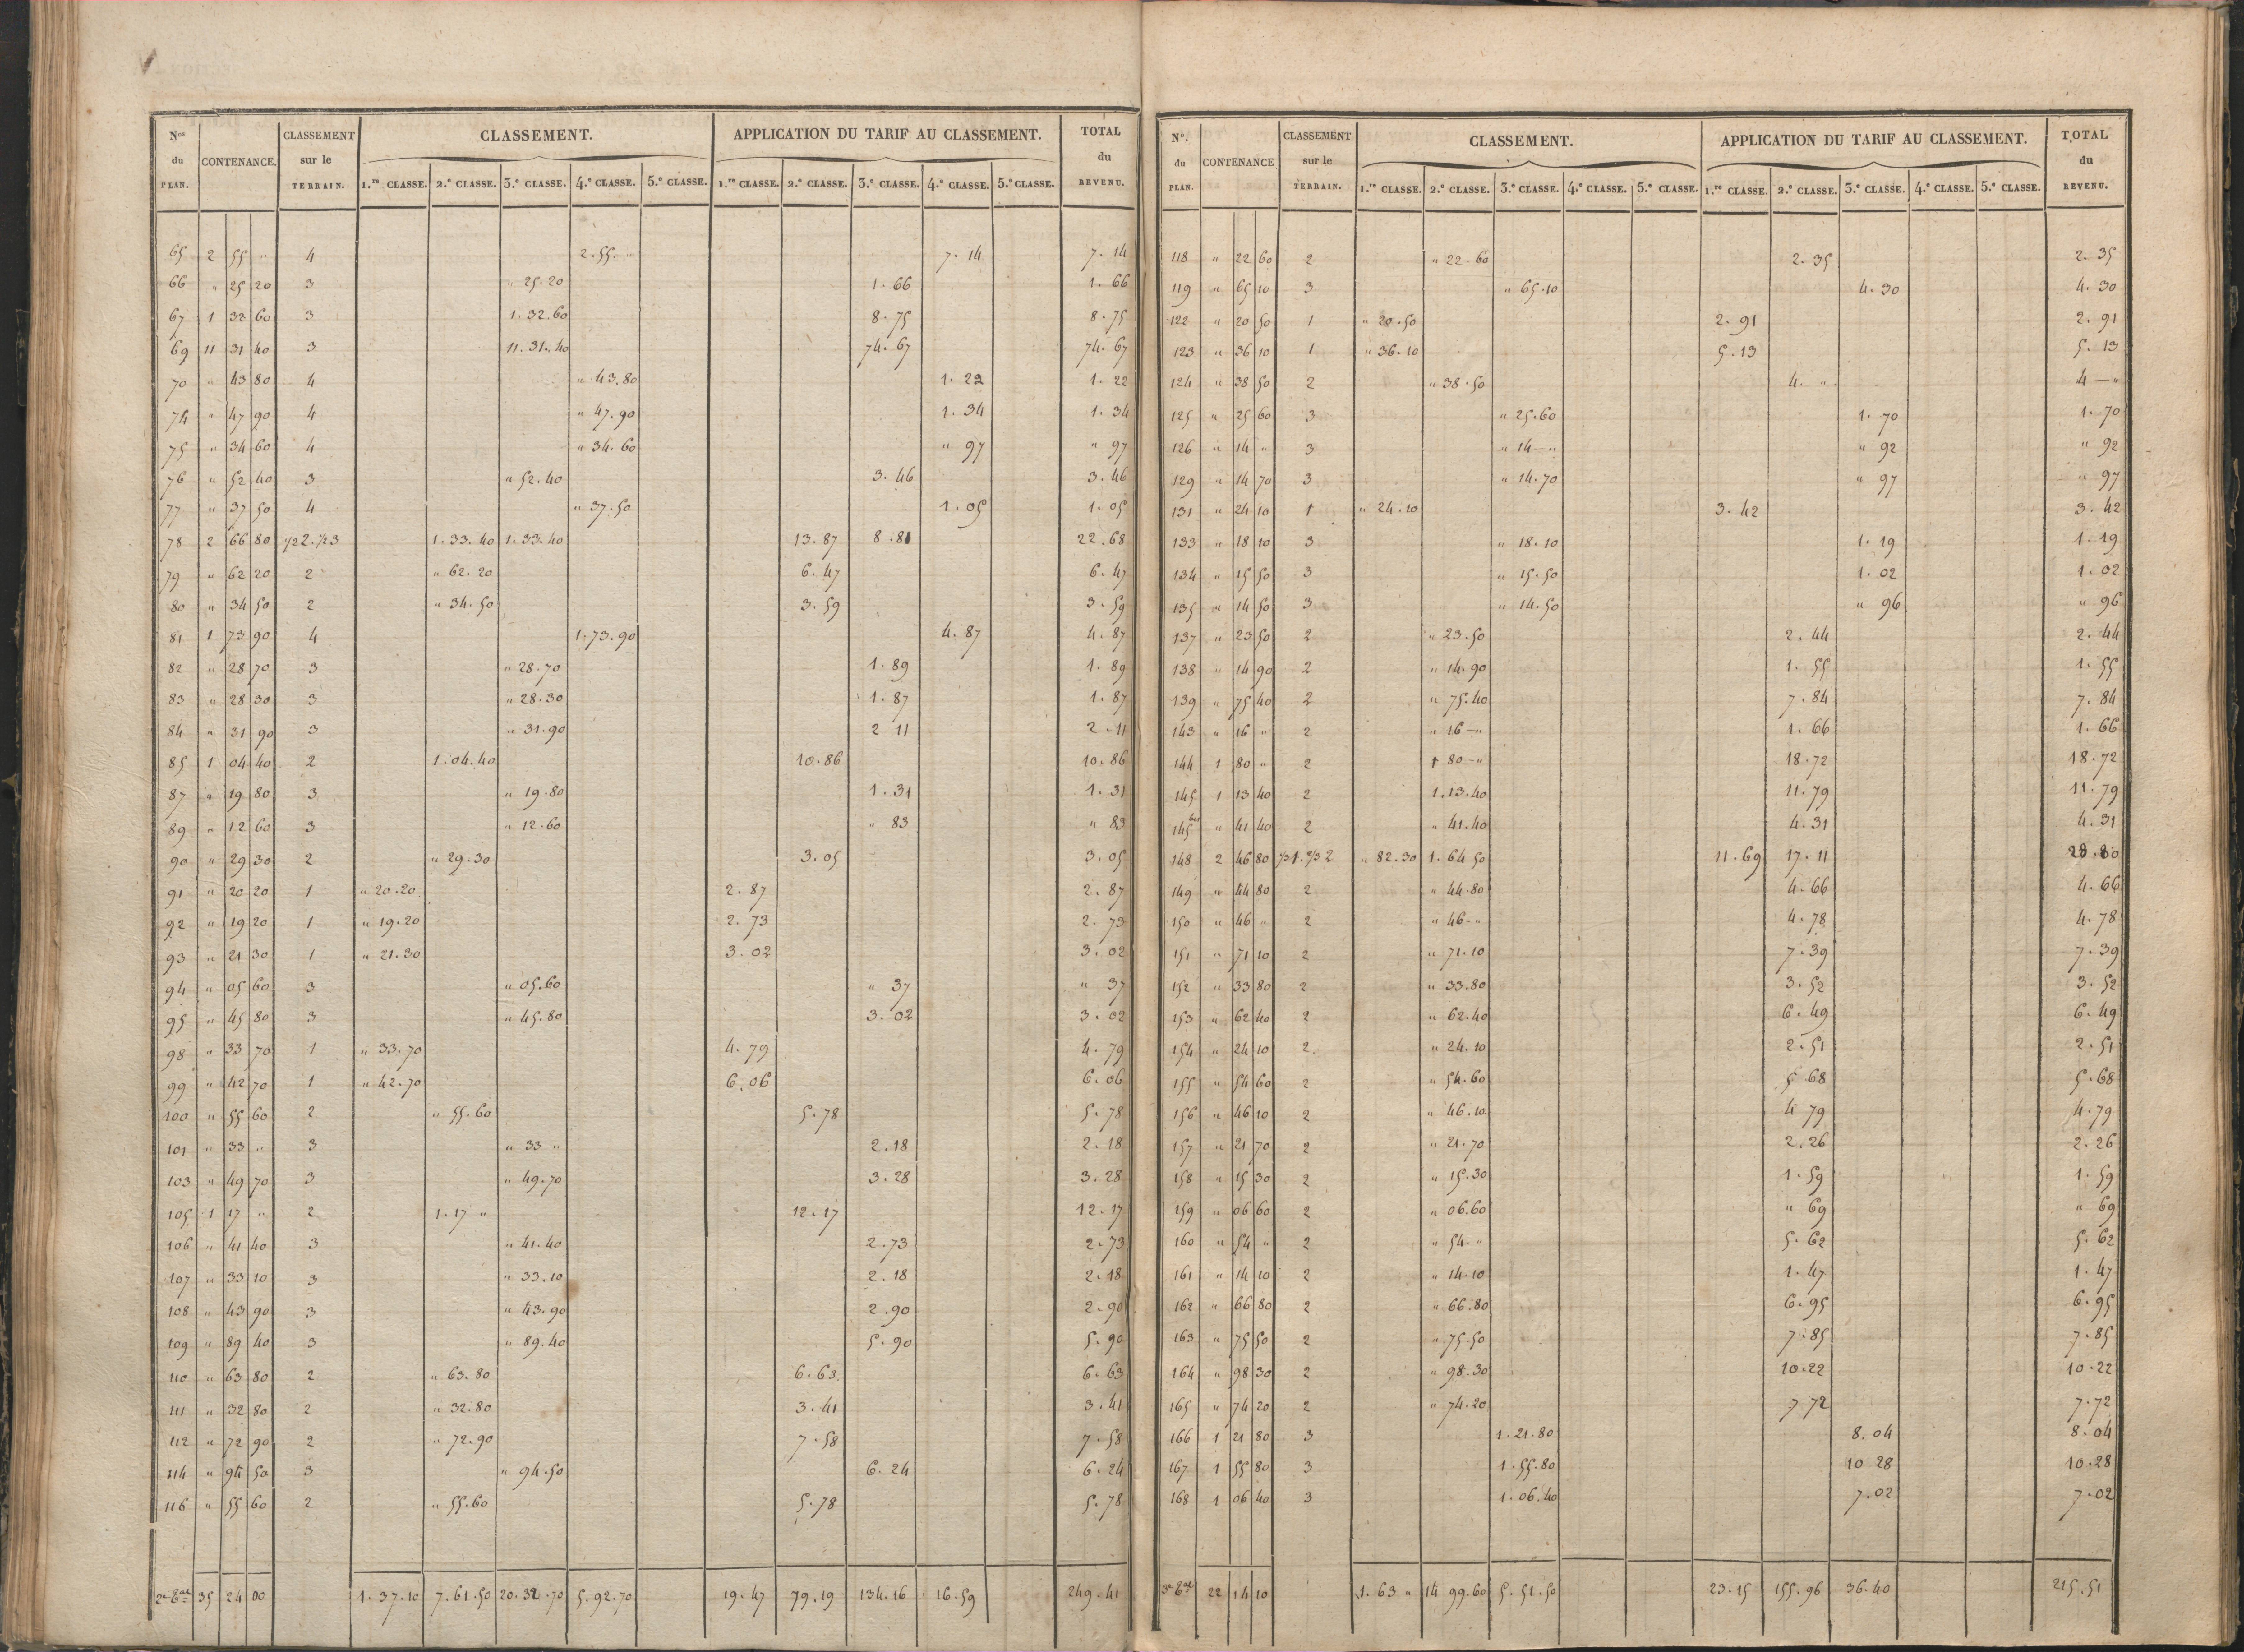 Nos du PLAN. CONTENANCE. CLASSEMENT sur le TERRAIN. CLASSEMENT. APPLICATION DU TARIF AU CLASSEMENT. TOTAL du REVENU.
1.re CLASSE. 2.e CLASSE. 3.e CLASSE. 4.e CLASSE. 5.e CLASSE. 1.re CLASSE. 2.e CLASSE. 3.e CLASSE. 4.e CLASSE. 5.e CLASSE.
65 2 55 " 4 2.55. " 7.14 7.14
66 " 25 20 3 " 25.20 1.66 1.66
67 1 32 60 3 1.32.60 8.75 8.75
69 11 31 40 3 11.31.40 74.67 74.67
70 " 43 80 4 " 43.80 1.22 1.22
74 " 47 90 4 " 47.90 1.34 1.34
75 " 34 60 4 " 34.60 " 97 " 97
76 " 52 40 3 " 52.40 3.46 3.46
77 " 37 50 4 " 37.50 1.05 1.05
78 2 66 80 1/2 2. 1/2 3 1.33.40 1.33.40 13.87 8.81 22.68
79 " 62 20 2 " 62.20 6.47 6.47
80 " 34 50 2 " 34.50 3.59 3.59
81 1 73 90 4 1.73.90 4.87 4.87
82 " 28 70 3 " 28.70 1.89 1.89
83 " 28 30 3 " 28.30 1.87 1.87
84 " 31 90 3 " 31.90 2 11 2.11
85 1 04 40 2 1.04.40 10.86 10.86
87 " 19 80 3 " 19.80 1.31 1.31
89 " 12 60 3 " 12.60 " 83 " 83
90 " 29 30 2 " 29.30 3.05 3.05
91 " 20 20 1 " 20.20 2.87 2.87
92 " 19 20 1 " 19.20 2.73 2.73
93 " 21 30 1 " 21.30 3.02 3.02
94 " 05 60 3 " 05.60 " 37 " 37
95 " 45 80 3 " 45.80 3.02 3.02
98 " 33 70 1 " 33.70 4.79 4.79
99 " 42 70 1 " 42.70 6.06 6.06
100 " 55 60 2 " 55.60 5.78 5.78
101 " 33 " 3 " 33 " 2.18 2.18
103 " 49 70 3 " 49.70 3.28 3.28
105 1 17 " 2 1.17 " 12.17 12.17
106 " 41 40 3 " 41.40 2.73 2.73
107 " 33 10 3 " 33.10 2.18 2.18
108 " 43 90 3 " 43.90 2.90 2.90
109 " 89 40 3 " 89.40 5.90 5.90
110 " 63 80 2 " 63.80 6.63 6.63
111 " 32 80 2 " 32.80 3.41 3.41
112 " 72 90 2 " 72.90 7.58 7.58
114 " 94 50 3 " 94.50 6.24 6.24
116 " 55 60 2 " 55.60 5.78 5.78
35 24 00 1.37.10 7.61.50 20.32.70 5.92.70 19.47 79.19 134.16 16.59 249.41
No. du PLAN. CONTENANCE CLASSEMENT sur le TERRAIN. CLASSEMENT. APPLICATION DU TARIF AU CLASSEMENT. TOTAL du REVENU.
1.re CLASSE. 2.e CLASSE. 3.e CLASSE. 4.e CLASSE. 5.e CLASSE. 1.re CLASSE. 2.e CLASSE. 3.e CLASSE. 4.e CLASSE. 5.e CLASSE.
118 " 22 60 2 " 22.60 2.35 2.35
119 " 65 10 3 " 65.10 4.30 4.30
122 " 20 50 1 " 20.50 2.91 2.91
123 " 36 10 1 " 36.10 5.13 5.13
124 " 38 50 2 " 38.50 4. " 4 — "
125 " 25 60 3 " 25.60 1.70 1.70
126 " 14 " 3 " 14 — " " 92 " 92
129 " 14 70 3 " 14.70 " 97 " 97
131 " 24 10 1 " 24.10 3.42 3.42
133 " 18 10 3 " 18.10 1.19 1.19
134 " 15 50 3 " 15.50 1.02 1.02
135 " 14 50 3 " 14.50 " 96 " 96
137 " 23 50 2 " 23.50 2.44 2.44
138 " 14 90 2 " 14.90 1.55 1.55
139 " 75 40 2 " 75.40 7.84 7.84
143 " 16 " 2 " 16 — " 1.66 1.66
144 1 80 " 2 1 80 — " 18.72 18.72
145 1 13 40 2 1.13.40 11.79 11.79
145 bis " 41 40 2 " 41.40 4.31 4.31
148 2 46 80 1/3 1. 2/3 2 " 82.30 1.64.50 11.69 17.11 28.80
149 " 44 80 2 " 44.80 4.66 4.66
150 " 46 " 2 " 46 - " 4.78 4.78
151 " 71 10 2 " 71.10 7.39 7.39
152 " 33 80 2 " 33.80 3.52 3.52
153 " 62 40 2 " 62.40 6.49 6.49
154 " 24 10 2 " 24.10 2.51 2.51
155 " 54 60 2 " 54.60 5.68 5.68
156 " 46 10 2 " 46.10 4 79 4.79
157 " 21 70 2 " 21.70 2.26 2.26
158 " 15 30 2 " 15.30 1.59 1.59
159 " 06 60 2 " 06.60 " 69 " 69
160 " 54 " 2 " 54. " 5.62 5.62
161 " 14 10 2 " 14.10 1.47 1.47
162 " 66 80 2 " 66.80 6.95 6.95
163 " 75 50 2 " 75.50 7.85 7.85
164 " 98 30 2 " 98.30 10.22 10.22
165 " 74 20 2 " 74.20 7 72 7.72
166 1 21 80 3 1.21.80 8.04 8.04
167 1 55 80 3 1.55.80 10 28 10.28
168 1 06 40 3 1.06.40 7.02 7.02
22 14 10 1.63 " 14 99.60 5.51.50 23.15 155.96 36.40 215.51